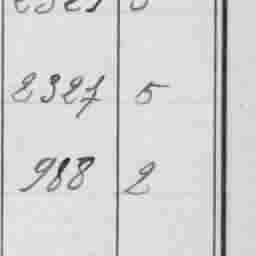 2327 5
988 2